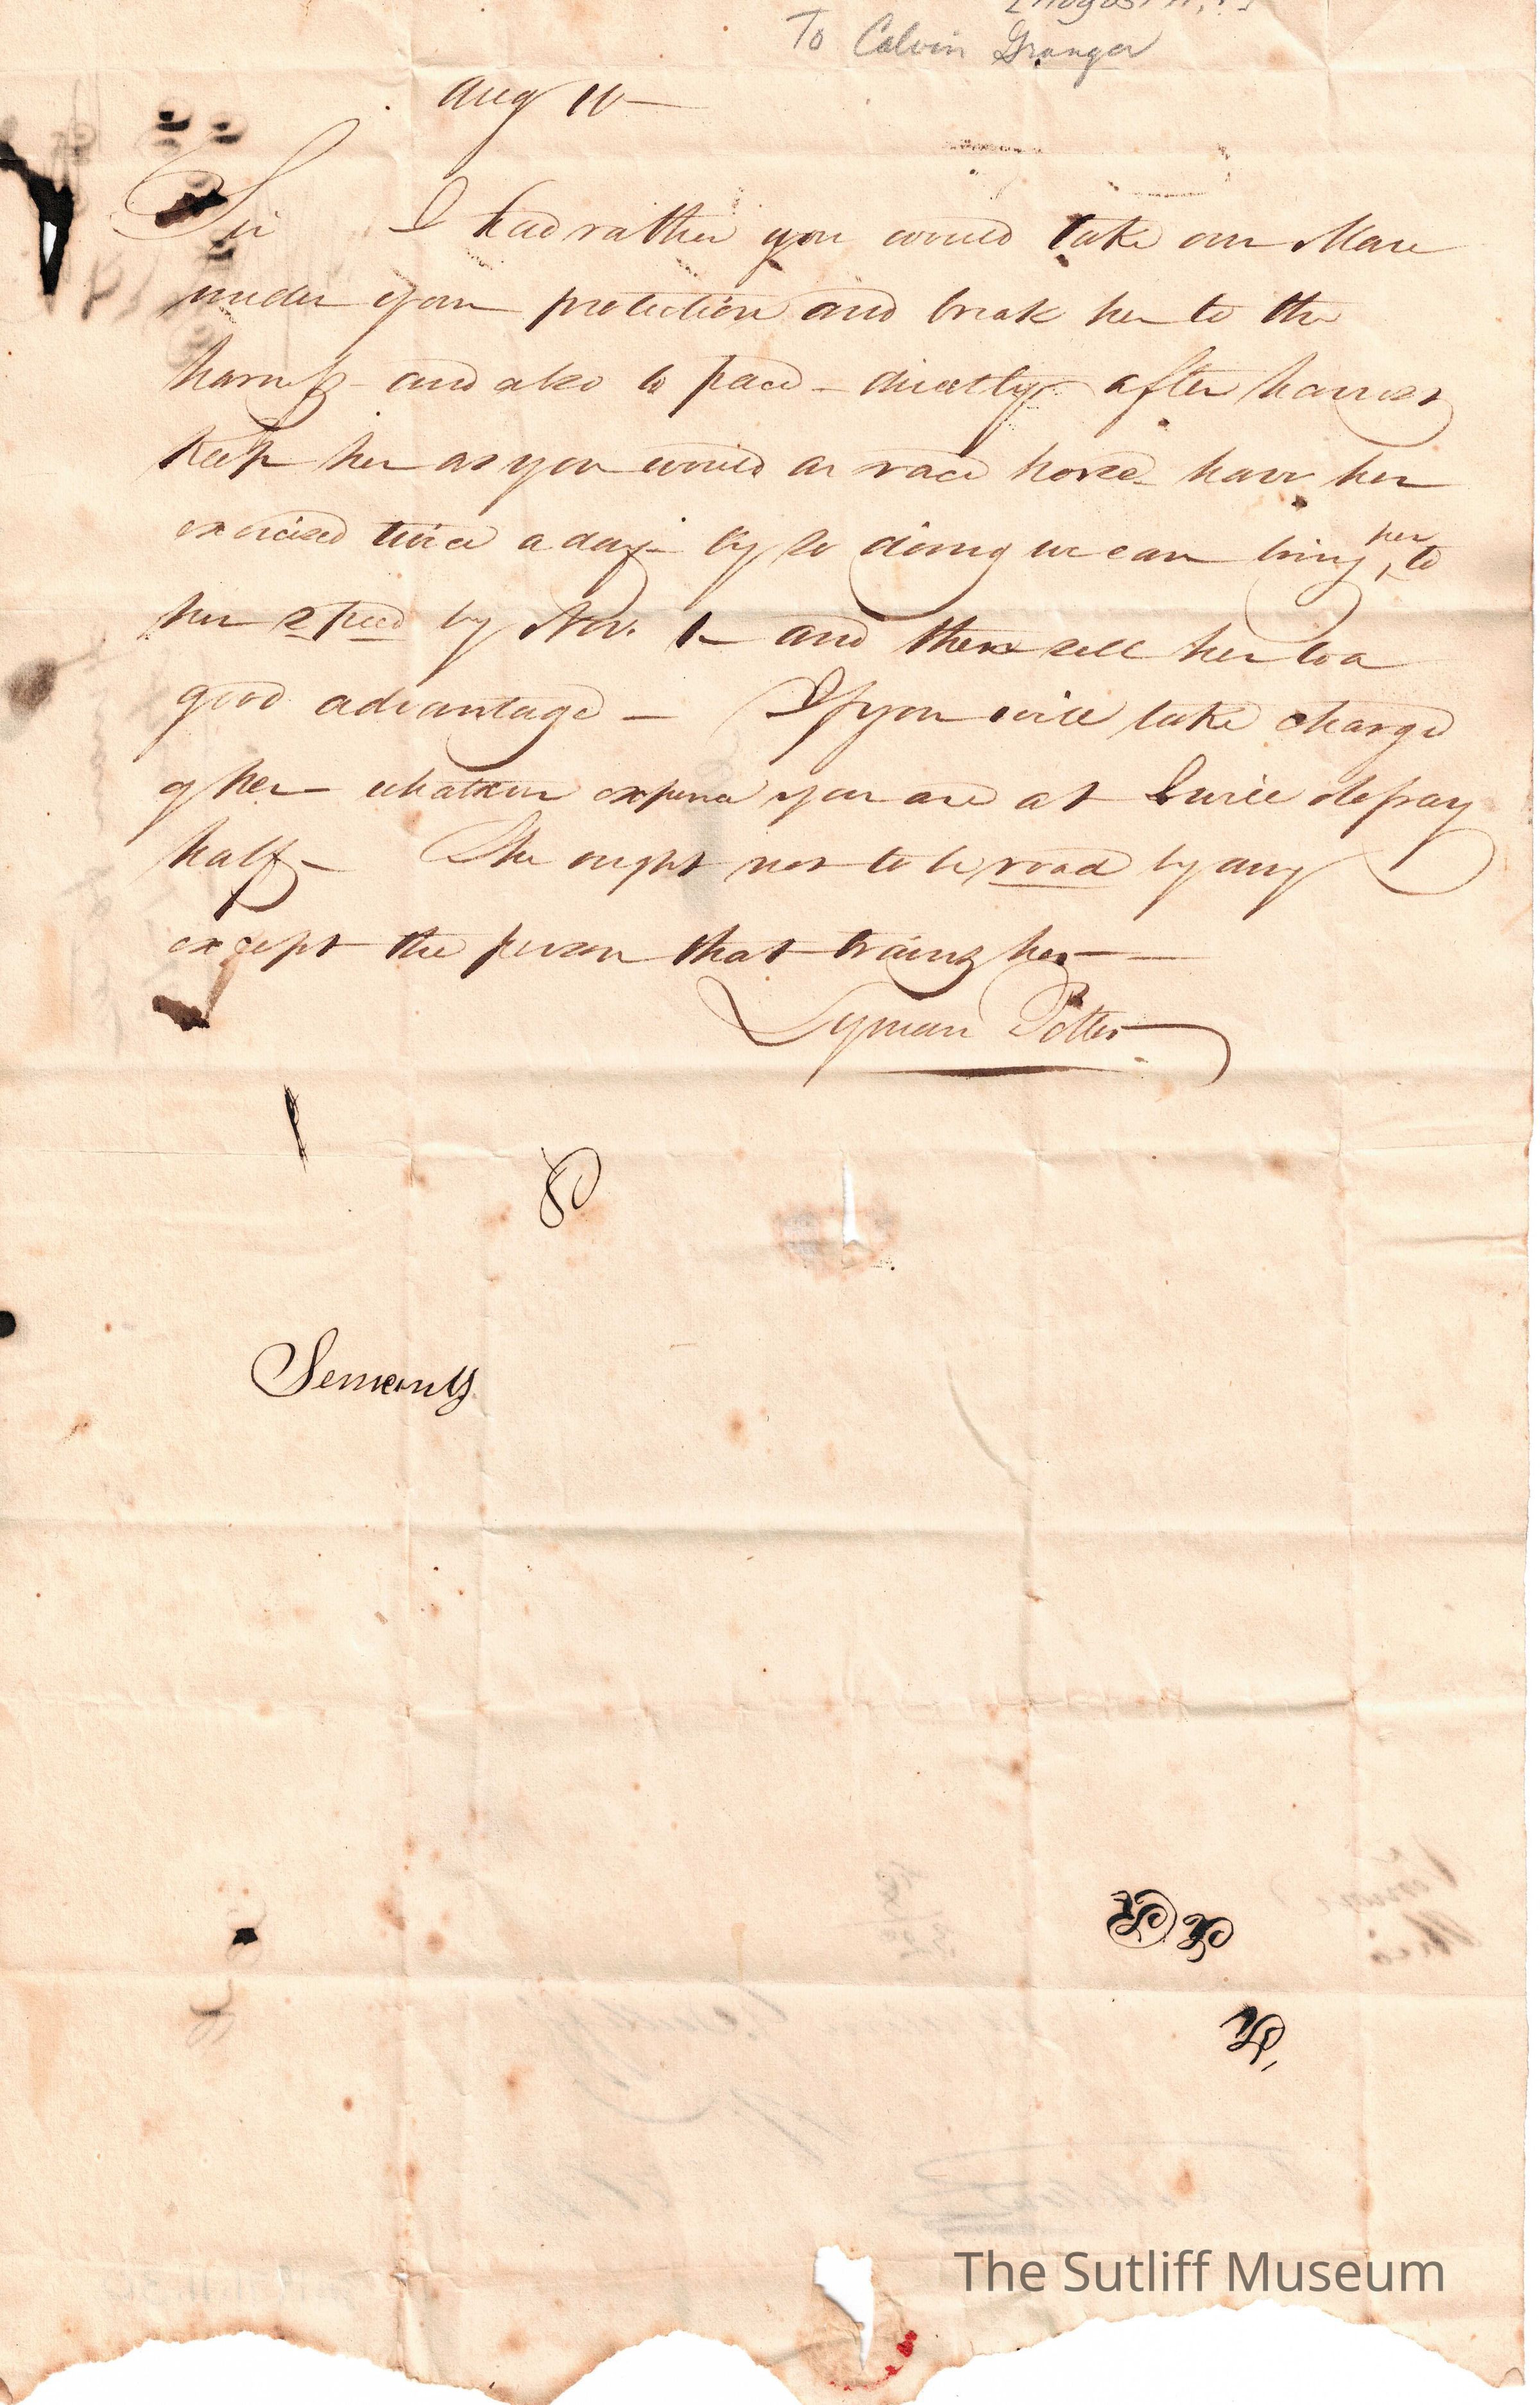 To Calvin Granger
Aug 10
Sir I had rather you would take our Mare
under your protection and break her to the
harness and also to pace - directly after harvest
Keep her as you would a race horse have her
exercised twice a day - by so doing we can bring her to
her speed by Nov. 1 - and then sell her to a
good advantage - If you will take charge
of her - whatever expense you are at I will defray
half - She ought not to be road by any
except the person that trains her -
Lyman Potter
The Sutliff Museum